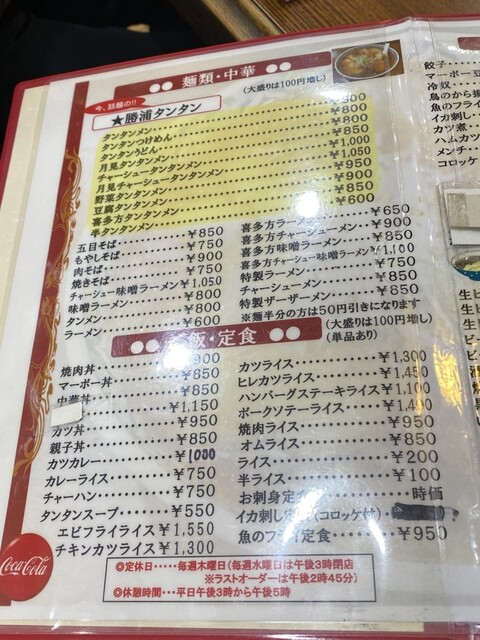 麺類・中華
(大盛りは100円増し)
今、話題の!!
★勝浦タンタン
タンタンメン ¥800
タンタンつけめん ¥800
タンタンうどん ¥800
月見タンタンメン ¥850
チャーシュータンタンメン ¥1,000
月見チャーシュータンタンメン ¥1,050
野菜タンタンメン ¥950
豆腐タンタンメン ¥900
喜多方タンタンメン ¥850
半タンタンメン ¥600
五目そば ¥850
もやしそば ¥750
肉そば ¥900
焼きそば ¥750
チャーシュー味噌ラーメン ¥1,050
味噌ラーメン ¥800
タンメン ¥800
ラーメン ¥600
喜多方ラーメン ¥650
喜多方チャーシューメン ¥900
喜多方味噌ラーメン ¥850
喜多方チャーシュー味噌ラーメン ¥1,100
特製ラーメン ¥750
チャーシューメン ¥850
特製ザーザーメン ¥850
※麺半分の方は50円引きになります
飯・定食
(大盛りは100円増し)
(単品あり)
焼肉丼 ¥900
マーボー丼 ¥850
中華丼 ¥850
¥1,150
カツ丼 ¥950
親子丼 ¥850
カツカレー ¥1000
カレーライス ¥750
チャーハン ¥750
タンタンスープ ¥550
エビフライライス ¥1,550
チキンカツライス ¥1,300
カツライス ¥1,300
ヒレカツライス ¥1,450
ハンバーグステーキライス ¥1,100
ポークソテーライス
焼肉ライス ¥950
オムライス ¥850
ライス ¥200
半ライス ¥100
お刺身定食 時価
イカ刺し定食(コロッケ付)
魚のフライ定食 ¥950
◎定休日・・・・・毎週木曜日(毎週水曜日は午後3時閉店
※ラストオーダーは午後2時45分)
◎休憩時間・・・平日午後3時から午後5時
Coca-Cola
餃子
マーボー豆
冷奴
鳥のから揚
魚のフライ
イカ刺し
カツ煮
ハムカツ
メンチ
コロッケ
生ビ
生ビ
生ビ
ビ